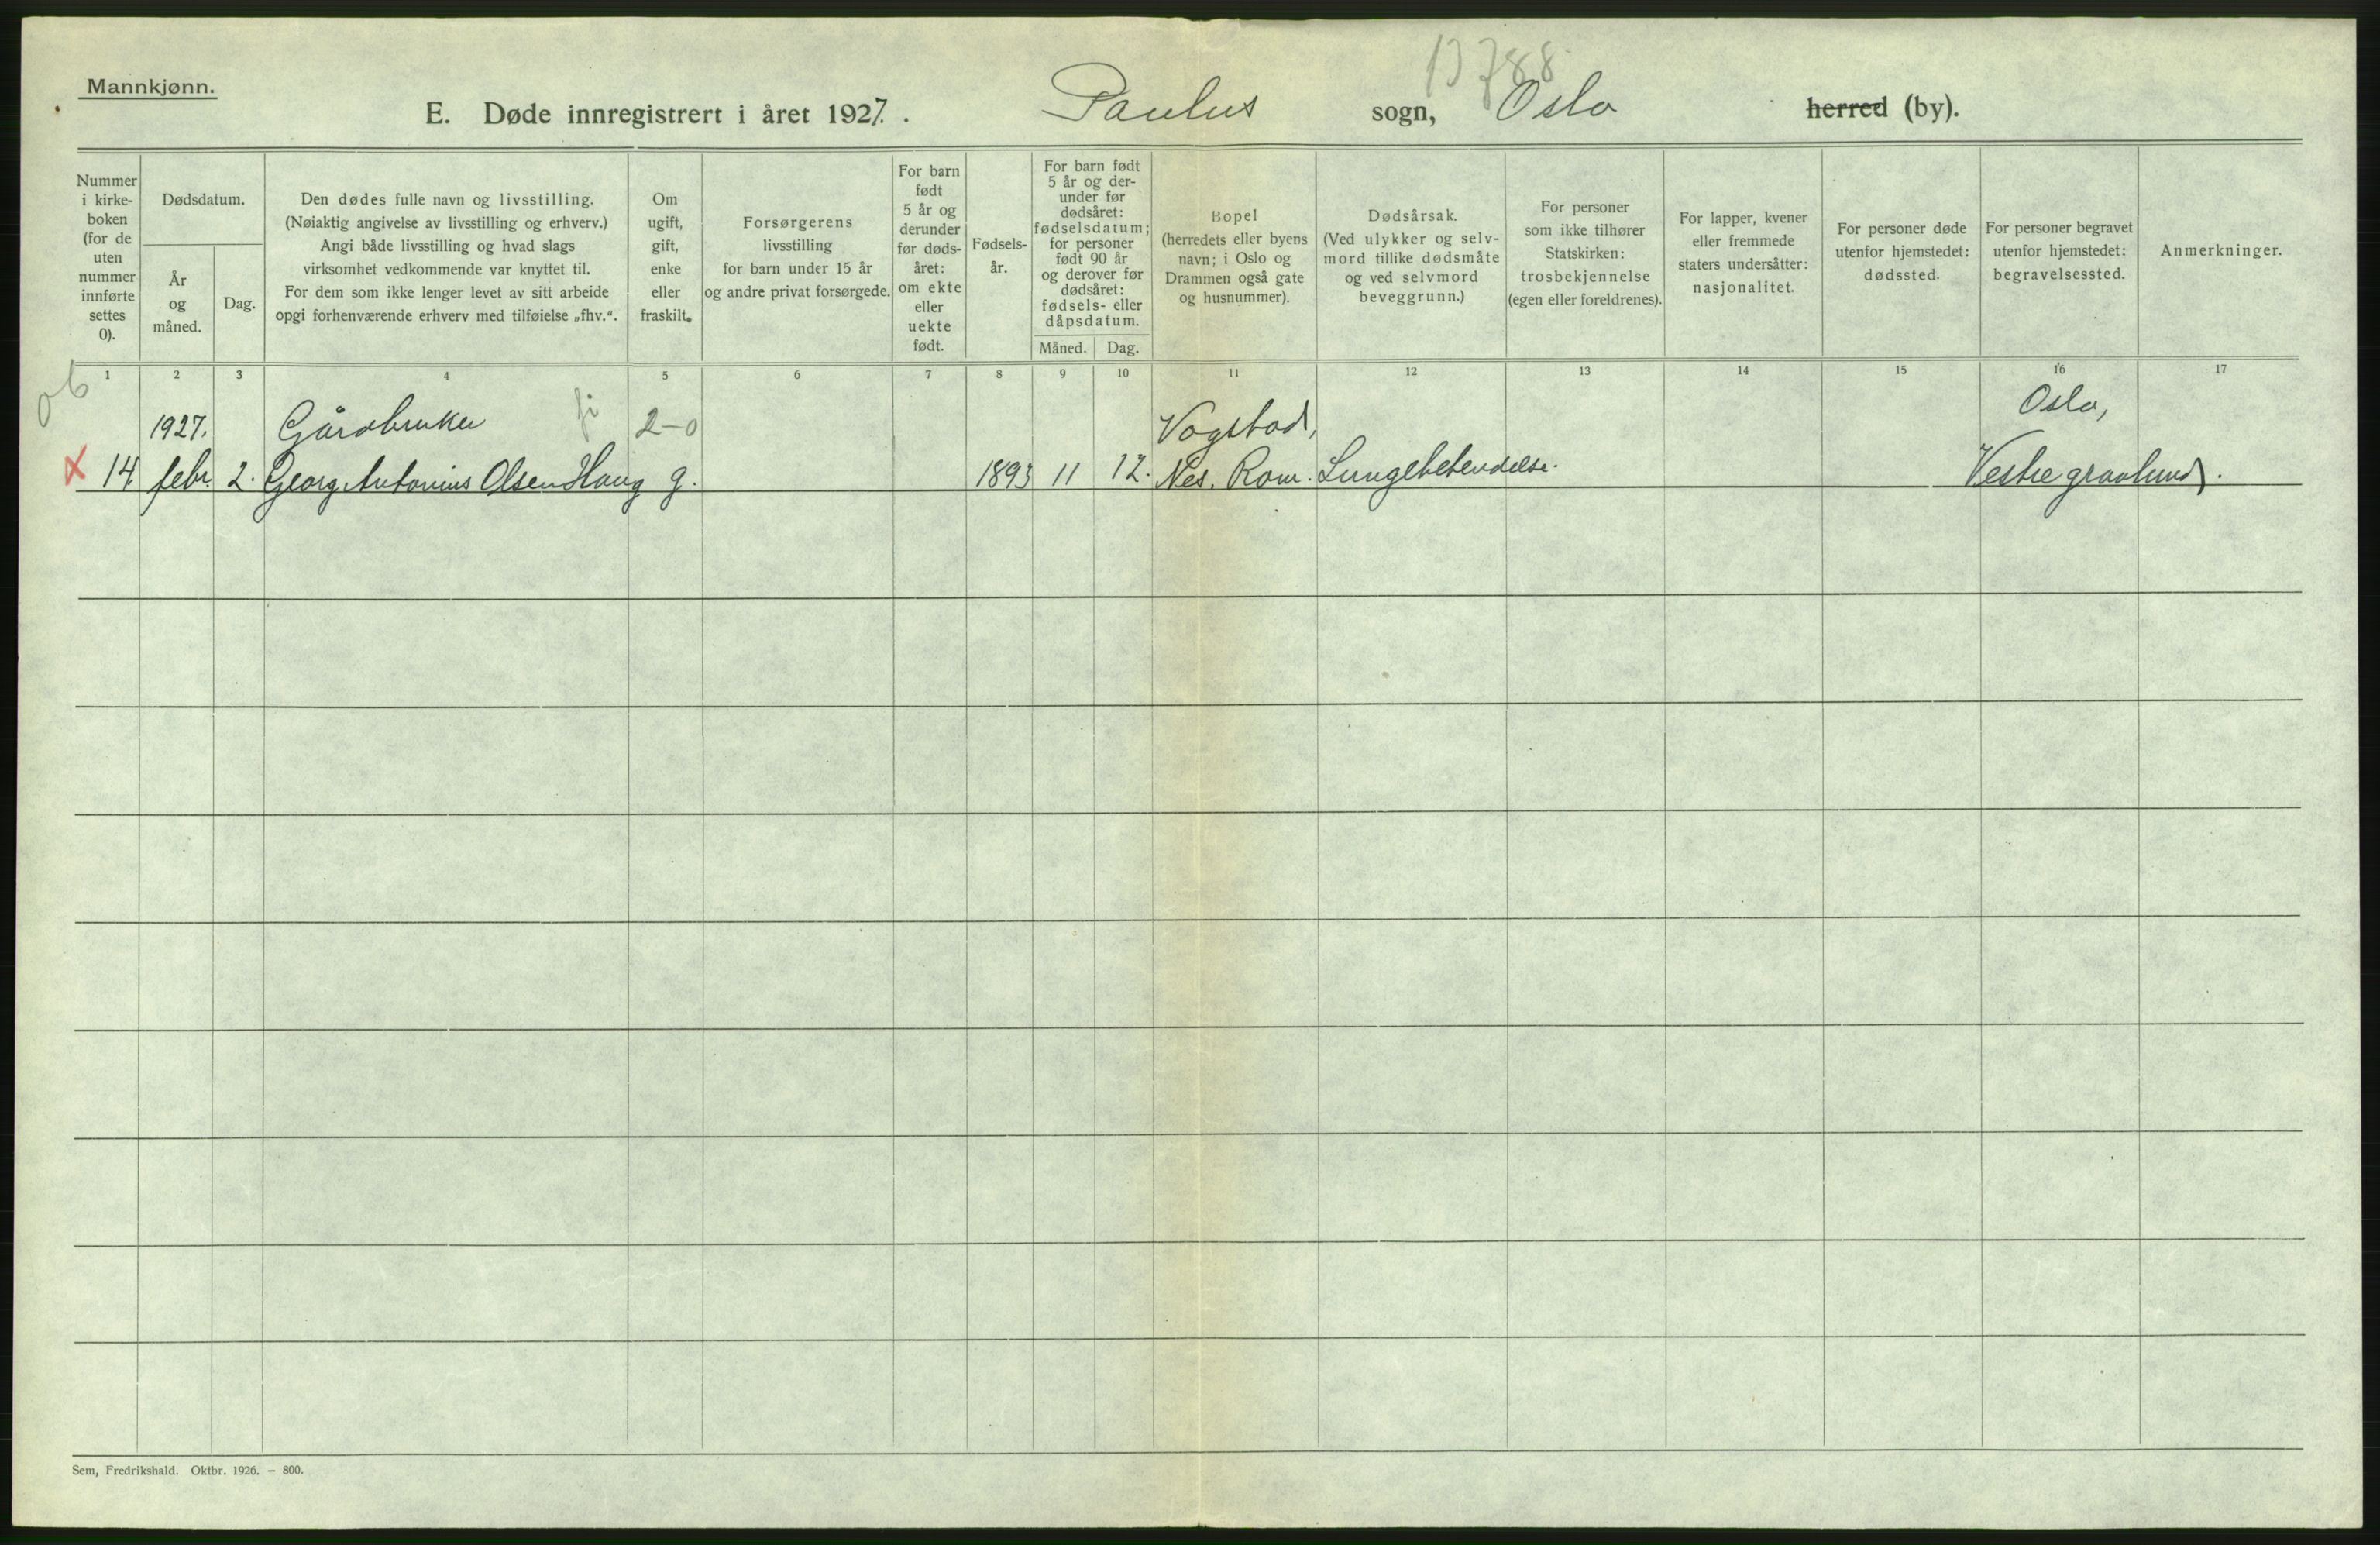 13788
Mannkjønn.
E. Døde innregistrert i året 1927. Paulus sogn, Oslo herred (by).
Nummer i kirke- boken (for de uten nummer innførte settes 0).
Dødsdatum.
År og måned.
Dag.
Den dødes fulle navn og livsstilling.
(Nøiaktig angivelse av livsstilling og erhverv.)
Angi både livsstilling og hvad slags
virksomhet vedkommende var knyttet til.
For dem som ikke lenger levet av sitt arbeide
opgi forhenværende erhverv med tilføielse „fhv.“.
Om ugift, gift, enke eller fraskilt.
Forsørgerens
livsstilling
for barn under 15 år
og andre privat forsørgede.
For barn født 5 år og derunder før døds- året: om ekte eller uekte født.
Fødsels- år.
For barn født 5 år og der- under før dødsåret: fødselsdatum; for personer født 90 år og derover før dødsåret: fødsels- eller dåpsdatum.
Måned. Dag.
Bopel
(herredets eller byens
navn; i Oslo og
Drammen også gate
og husnummer).
Dødsårsak.
(Ved ulykker og selv-
mord tillike dødsmåte
og ved selvmord
beveggrunn.)
For personer
som ikke tilhører
Statskirken:
trosbekjennelse
(egen eller foreldrenes).
For lapper, kvener
eller fremmede
staters undersåtter:
nasjonalitet.
For personer døde
utenfor hjemstedet:
dødssted.
For personer begravet
utenfor hjemstedet:
begravelsessted.
Anmerkninger.
1 2 3 4 5 6 7 8 9 10 11 12 13 14 15 16 17
ob
1927. Gårdbruker fi 2-0 Vogstad, Oslo,
x 14 febr. 2. Georg Antonius Olsen Haug g. 1893 11 12. Nes. Rom. Lungebetendelse. Vestre gravlund.
Sem, Fredrikshald. Oktbr. 1926. — 800.